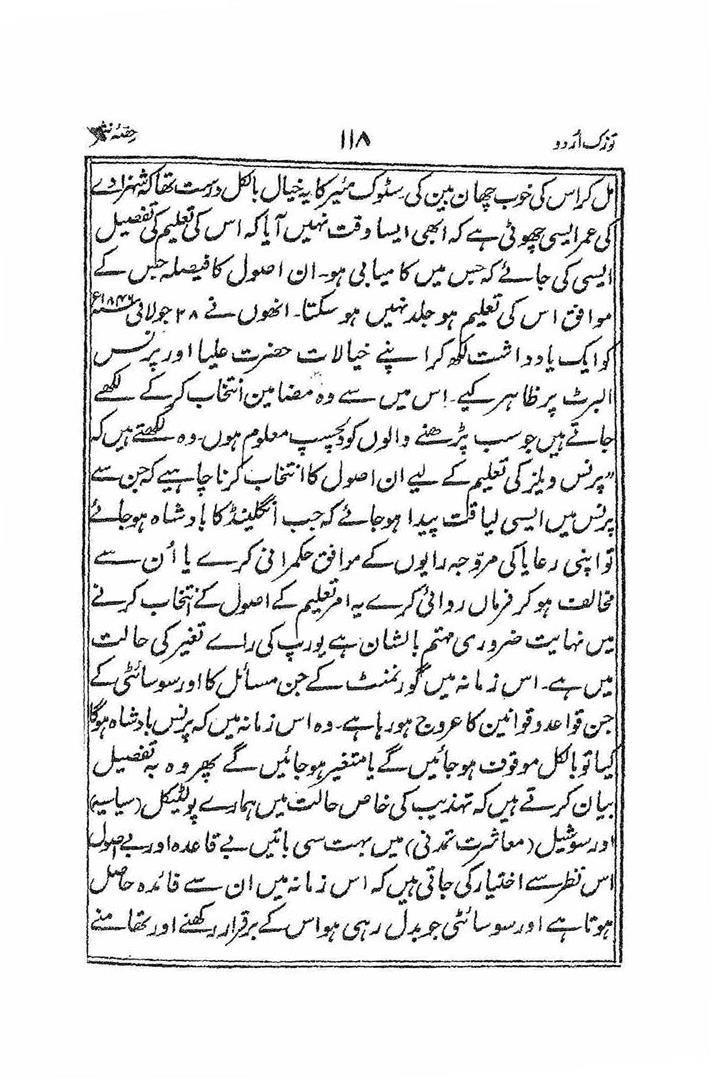 تزک اُردو ۱۱۸ حصّہ نثر
مل کر اس کی خوب چھان بین کی سٹوک میر کا یہ خیال بالکل درست تھا کہ شہزادے
کی عمر ایسی چھوٹی ہے کہ ابھی ایسا وقت نہیں آیا کہ اس کی تعلیم کی تفصیل
ایسی کی جائے کہ جس میں کامیابی ہو۔ ان اصول کا فیصلہ جس کے
موافق اس کی تعلیم ہو جلد نہیں ہو سکتا۔ انھوں نے ۲۸ جولائی ۱۸۴۶ء
کو ایک یادداشت لکھ کر اپنے خیالات حضرت علیا اور پرنس
البرٹ پر ظاہر کیے۔ اس میں سے وہ مضامین انتخاب کر کے لکھے
جاتے ہیں جو سب پڑھنے والوں کو دلچسپ معلوم ہوں۔ وہ لکھتے ہیں کہ
"پرنس ویلز کی تعلیم کے لیے ان اصول کا انتخاب کرنا چاہیے کہ جن سے
پرنس میں ایسی لیاقت پیدا ہو جائے کہ جب انگلینڈ کا بادشاہ ہو جائے
تو اپنی رعایا کی مروّجہ رایوں کے موافق حکمرانی کرے یا اُن سے
مخالف ہو کر فرماں روائی کرے یہ امر تعلیم کے اصول کے انتخاب کرنے
میں نہایت ضروری مہتم بالشان ہے یورپ کی رائے تغیر کی حالت
میں ہے۔ اس زمانہ میں گورنمنٹ کے جن مسائل کا اور سوسائٹی کے
جن قواعد و قوانین کا عروج ہو رہا ہے۔ وہ اس زمانہ میں کہ پرنس بادشاہ ہوگا
کیا تو بالکل موقوف ہو جائیں گے یا متغیر ہو جائیں گے پھر وہ بہ تفصیل
بیان کرتے ہیں کہ تہذیب کی خاص حالت میں ہمارے پولٹیکل (سیاسیہ)
اور سوشیل (معاشرت تمدنی) میں بہت سی باتیں بے قاعدہ اور بے اصول
اس نظر سے اختیار کی جاتی ہیں کہ اس زمانہ میں ان سے فائدہ حاصل
ہوتا ہے اور سوسائٹی جو بدل رہی ہو اس کے برقرار رکھنے اور تھامنے